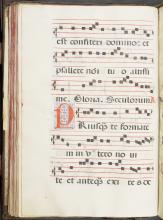 est confiteri domino: et
psallere nói tuo altissi
me. Gloria. Seculorum A
Priusq̃ te formarē
in in vtero noui
te et anteq̃ exi te de